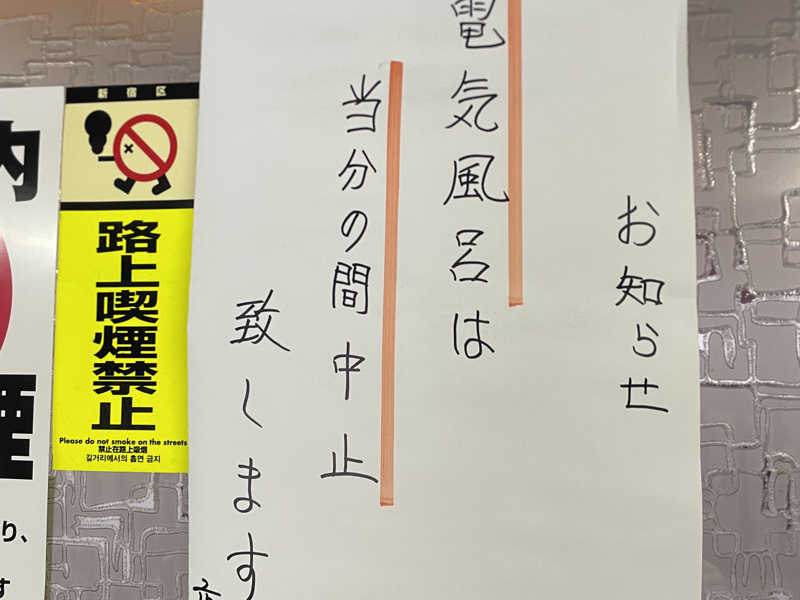 お知らせ
電気風呂は
当分の間中止
致します
新宿区
路上喫煙禁止
Please do not smoke on the streets
禁止在路上吸烟
길거리에서의 흡연 금지
内
煙
り、
す